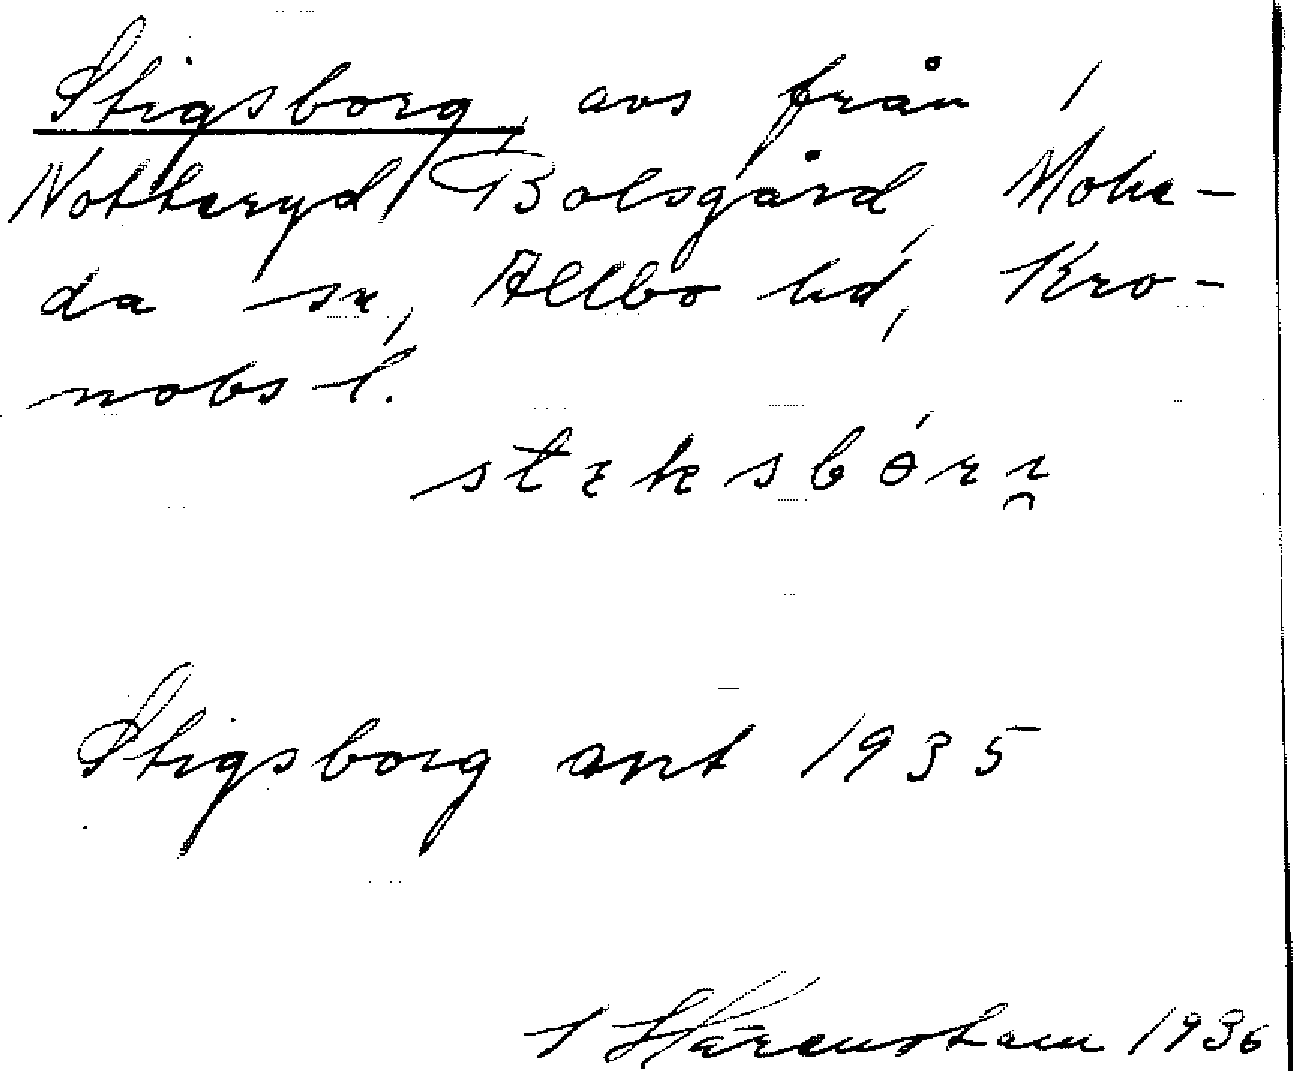 Stigsborg, avs från 1
Notteryd, Bolsgård, Mohe-
da sn, Allbo hd, Kro-
nobs l.
stɛksbórɪ̯
Stigsborg ant 1935
1936